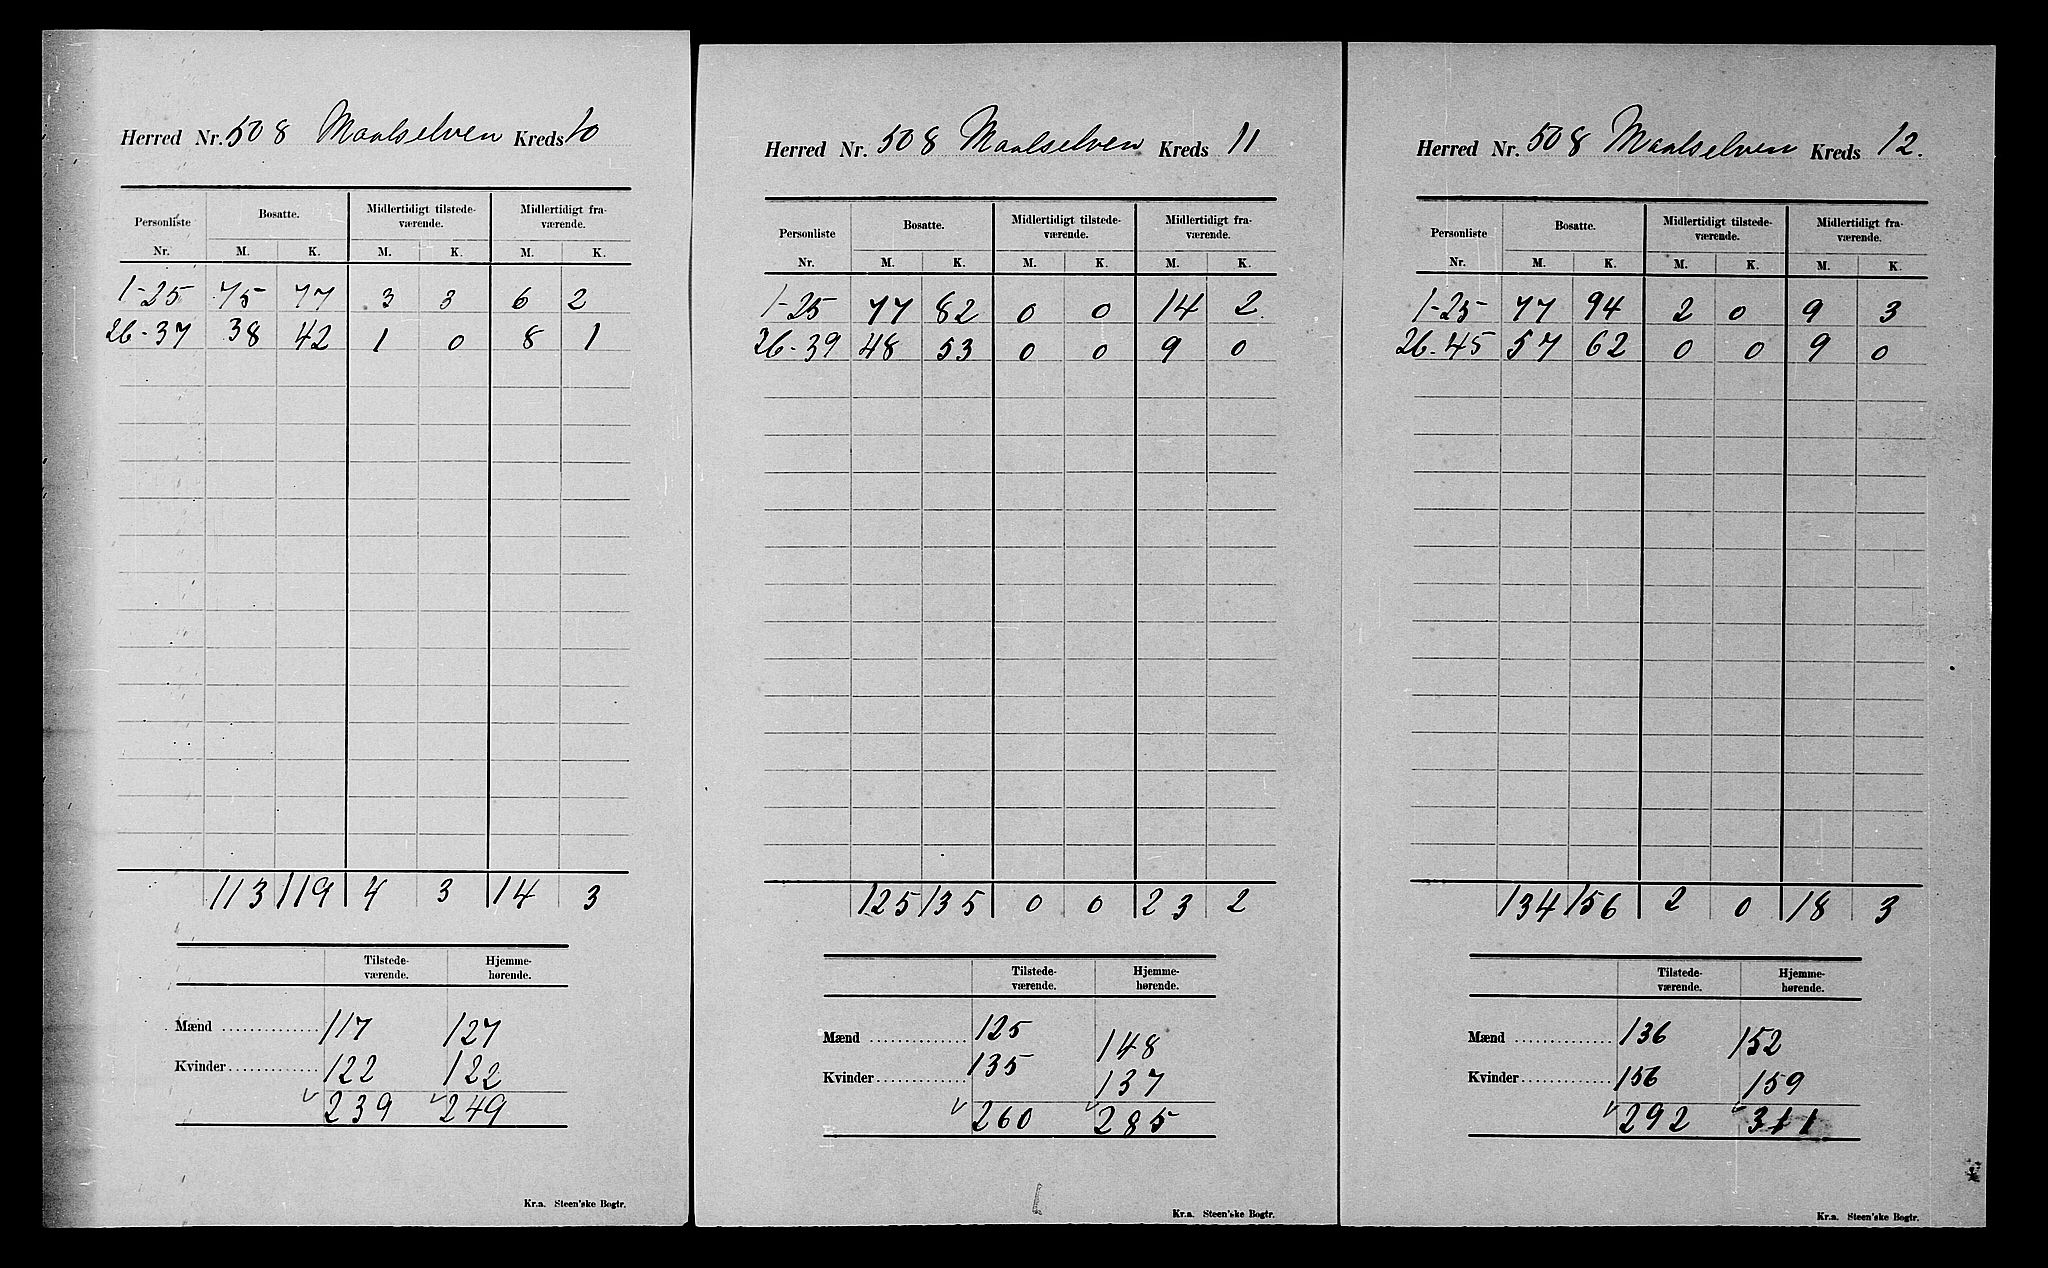 Herred Nr. 508 Maalselven Kreds 10
Personliste Bosatte. Midlertidigt tilstede- Midlertidigt fra-
værende. værende.
Nr. M. K. M. K. M. K.
1-25 75 77 3 3 6 2
26-37 38 42 1 0 8 1
113 119 4 3 14 3
Tilstede- Hjemme-
værende. hørende.
Mænd 117 127
Kvinder 122 122
239 249
Kr.a. Steen'ske Bogtr.
Herred Nr. 508 Maalselven Kreds 11
Personliste Bosatte. Midlertidigt tilstede- Midlertidigt fra-
værende. værende.
Nr. M. K. M. K. M. K.
1-25 77 82 0 0 14 2
26-39 48 53 0 0 9 0
125 135 0 0 23 2
Tilstede- Hjemme-
værende. hørende.
Mænd 125 148
Kvinder 135 137
260 285
Kr.a. Steen'ske Bogtr.
Herred Nr. 508 Maalselven Kreds 12.
Personliste Bosatte. Midlertidigt tilstede- Midlertidigt fra-
værende. værende.
Nr. M. K. M. K. M. K.
1-25 77 94 2 0 9 3
26-45 57 62 0 0 9 0
134 156 2 0 18 3
Tilstede- Hjemme-
værende. hørende.
Mænd 136 152
Kvinder 156 159
292 311
Kr.a. Steen'ske Bogtr.